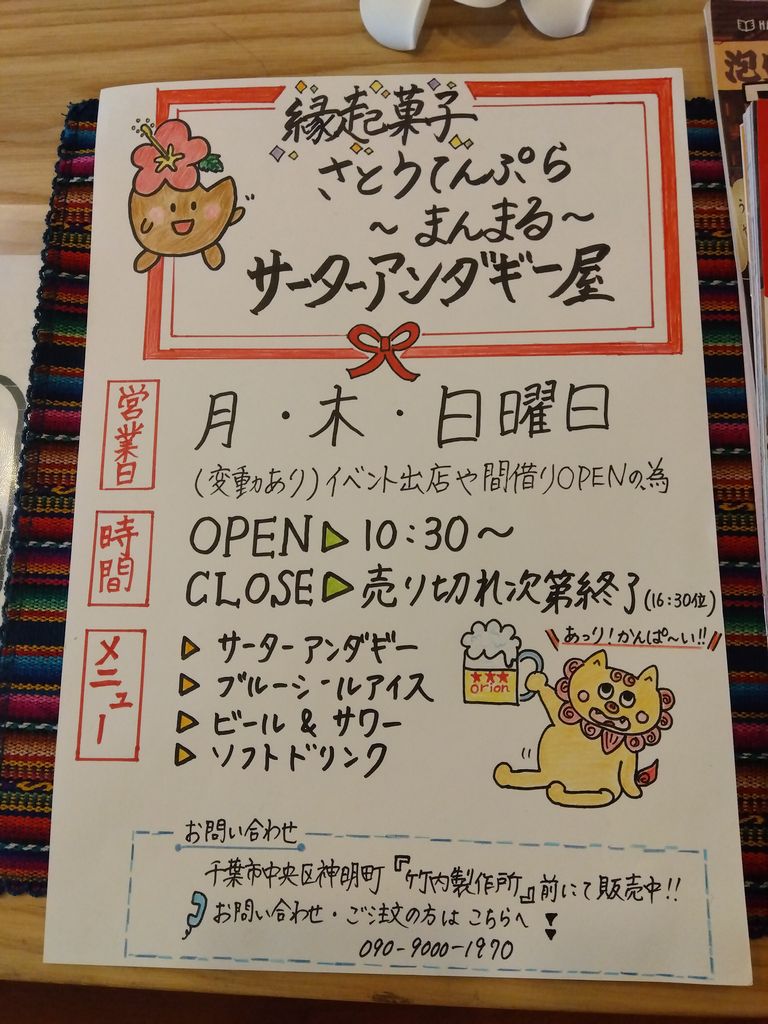 縁起菓子
さとうてんぷら
～まんまる～
サーターアンダギー屋
営業日
月・木・日曜日
(変動あり)イベント出店や間借りOPENの為
時間
OPEN▶10:30～
CLOSE▶売り切れ次第終了(16:30位)
メニュー
▶サーターアンダギー
▶ブルーシールアイス
▶ビール & サワー
▶ソフトドリンク
あっり!かんぱ～い!!
★★★
orion
お問い合わせ
千葉市中央区神明町『竹内製作所』前にて販売中!!
お問い合わせ・ご注文の方はこちらへ
090-9000-1970
泡